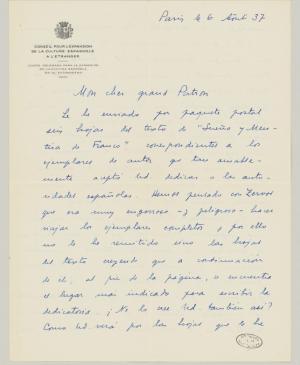 Paris le 6 Août 37
CONSEIL POUR L'EXPANSION
DE LA CULTURE ESPAGNOLE
A L'ETRANGER
Mon cher grand Patron
Le he enviado por paquete postal
seis hojas del texto de "Sueño y Men-
tira de Franco" correspondientes a los
ejemplares de autor que tan amable-
mente aceptó Ud. dedicar a las auto-
ridades españolas. Hemos pensado con Zervos
que era muy engorroso - y peligroso - hacer
viajar los ejemplares completos y por ello
no le he remitido sino las hojas
del texto creyendo que a continuación
de él, al pie de la página, se encuentra
el lugar mas indicado para escribir la
dedicatoria. ¿No lo cree Ud. también así?
Como Ud verá por las hojas que le he